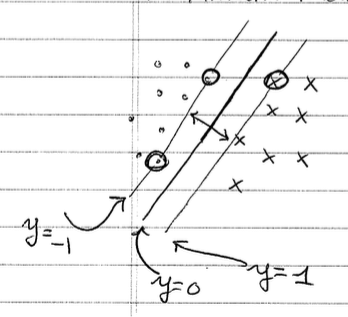 y=-1
y=0
y=1